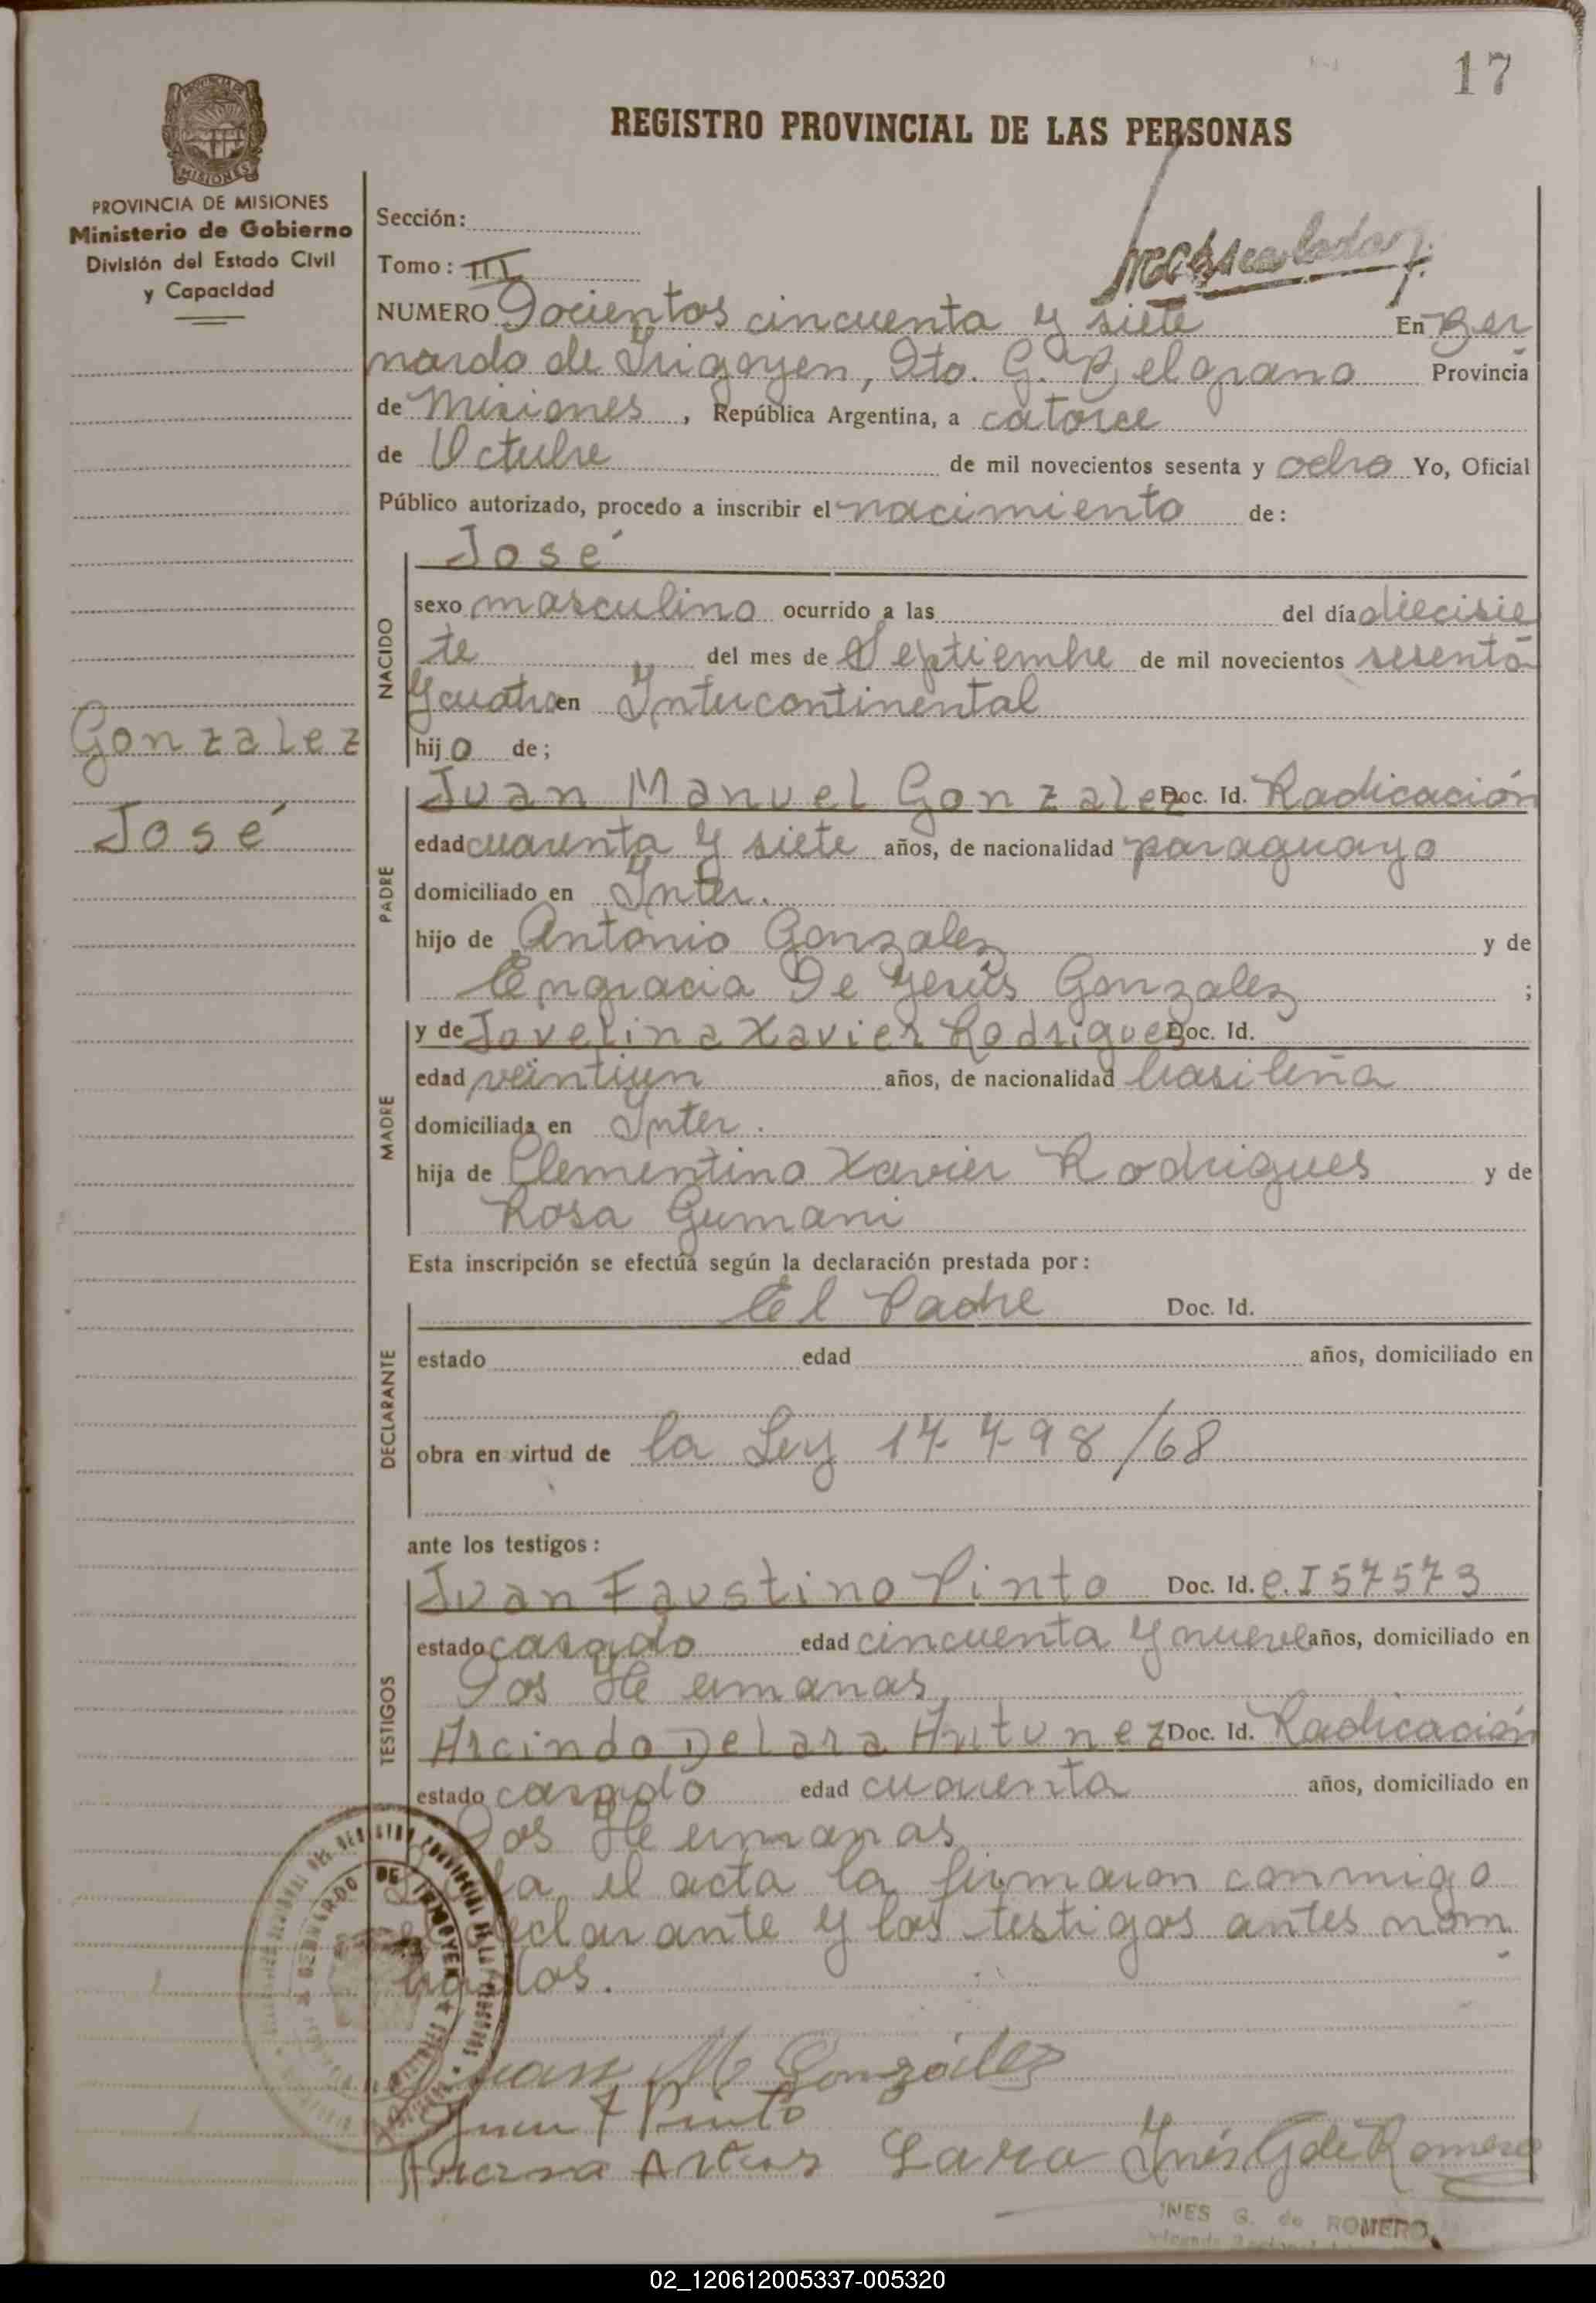 17
REGISTRO PROVINCIAL DE LAS PERSONAS
MISIONES
PROVINCIA DE MISIONES
Ministerio de Gobierno
División del Estado Civil
y Capacidad
Sección:
Tomo: III
NUMERO Docientos cincuenta y siete En Ber
nardo de Irigoyen, Dto. G.al Belgrano Provincia
de Misiones, República Argentina, a catorce
de Octubre de mil novecientos sesenta y ocho Yo, Oficial
Público autorizado, procedo a inscribir el nacimiento de:
José
NACIDO
sexo masculino ocurrido a las del día diecisie
te del mes de Septiembre de mil novecientos sesenta
y cuatro en Intercontinental
hijo de;
Gonzalez
José
PADRE
Juan Manuel Gonzalez Doc. Id. Radicación
edad cuarenta y siete años, de nacionalidad paraguayo
domiciliado en Inter.
hijo de Antonio Gonzalez y de
Engracia De Jesús Gonzalez ;
MADRE
y de Jovelina Xavier Rodrigues Doc. Id.
edad veintiun años, de nacionalidad brasileña
domiciliada en Inter.
hija de Clementino Xavier Rodrigues y de
Rosa Gumani
Esta inscripción se efectúa según la declaración prestada por:
DECLARANTE
El Padre Doc. Id.
estado edad años, domiciliado en
obra en virtud de la Ley 17798/68
ante los testigos:
TESTIGOS
Juan Faustino Pinto Doc. Id. C.I 57573
estado casado edad cincuenta y nueve años, domiciliado en
Dos Hermanas
Arcindo De Lara Antunez Doc. Id. Radicación
estado casado edad cuarenta años, domiciliado en
Dos Hermanas
el acta la firmaron conmigo
declarante y los testigos antes nom
brados.
Juan M González
Juan F Pinto
Lara Inés G de Romero
INES G. de ROMERO
02_120612005337-005320